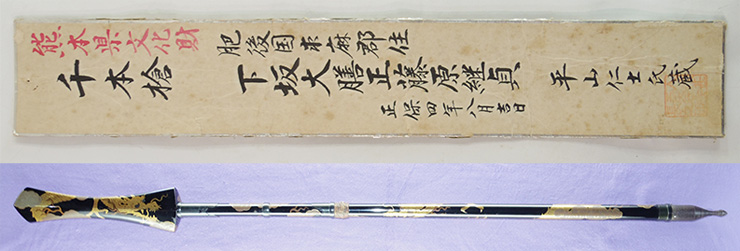 熊本県文化財
千本槍
肥後国求麻郡住
下坂大膳正藤原継貞
正保四年八月吉日
平山仁士氏蔵